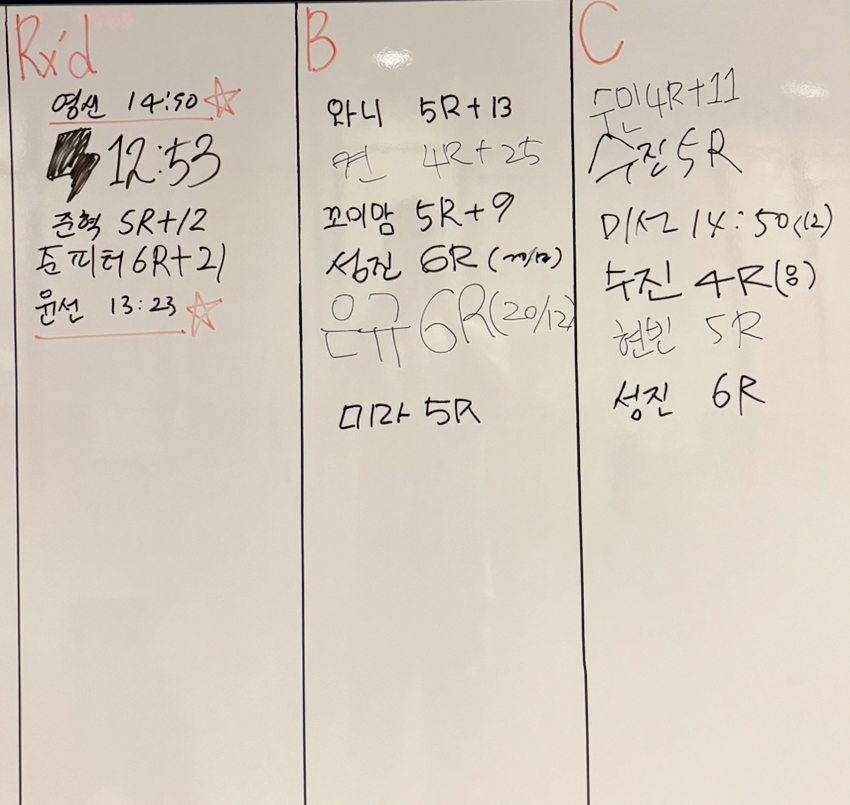 Rx'd
영신 14:50
12:53
준혁 5R+12
준피터 6R+21
윤선 13:23
B
와니 5R+13
연 4R+25
꼬미맘 5R+9
성진 6R
은규 6R(20/12)
미라 5R
C
4R+11
수진 5R
미선 14:50(12)
수진 4R(8)
현빈 5R
성진 6R